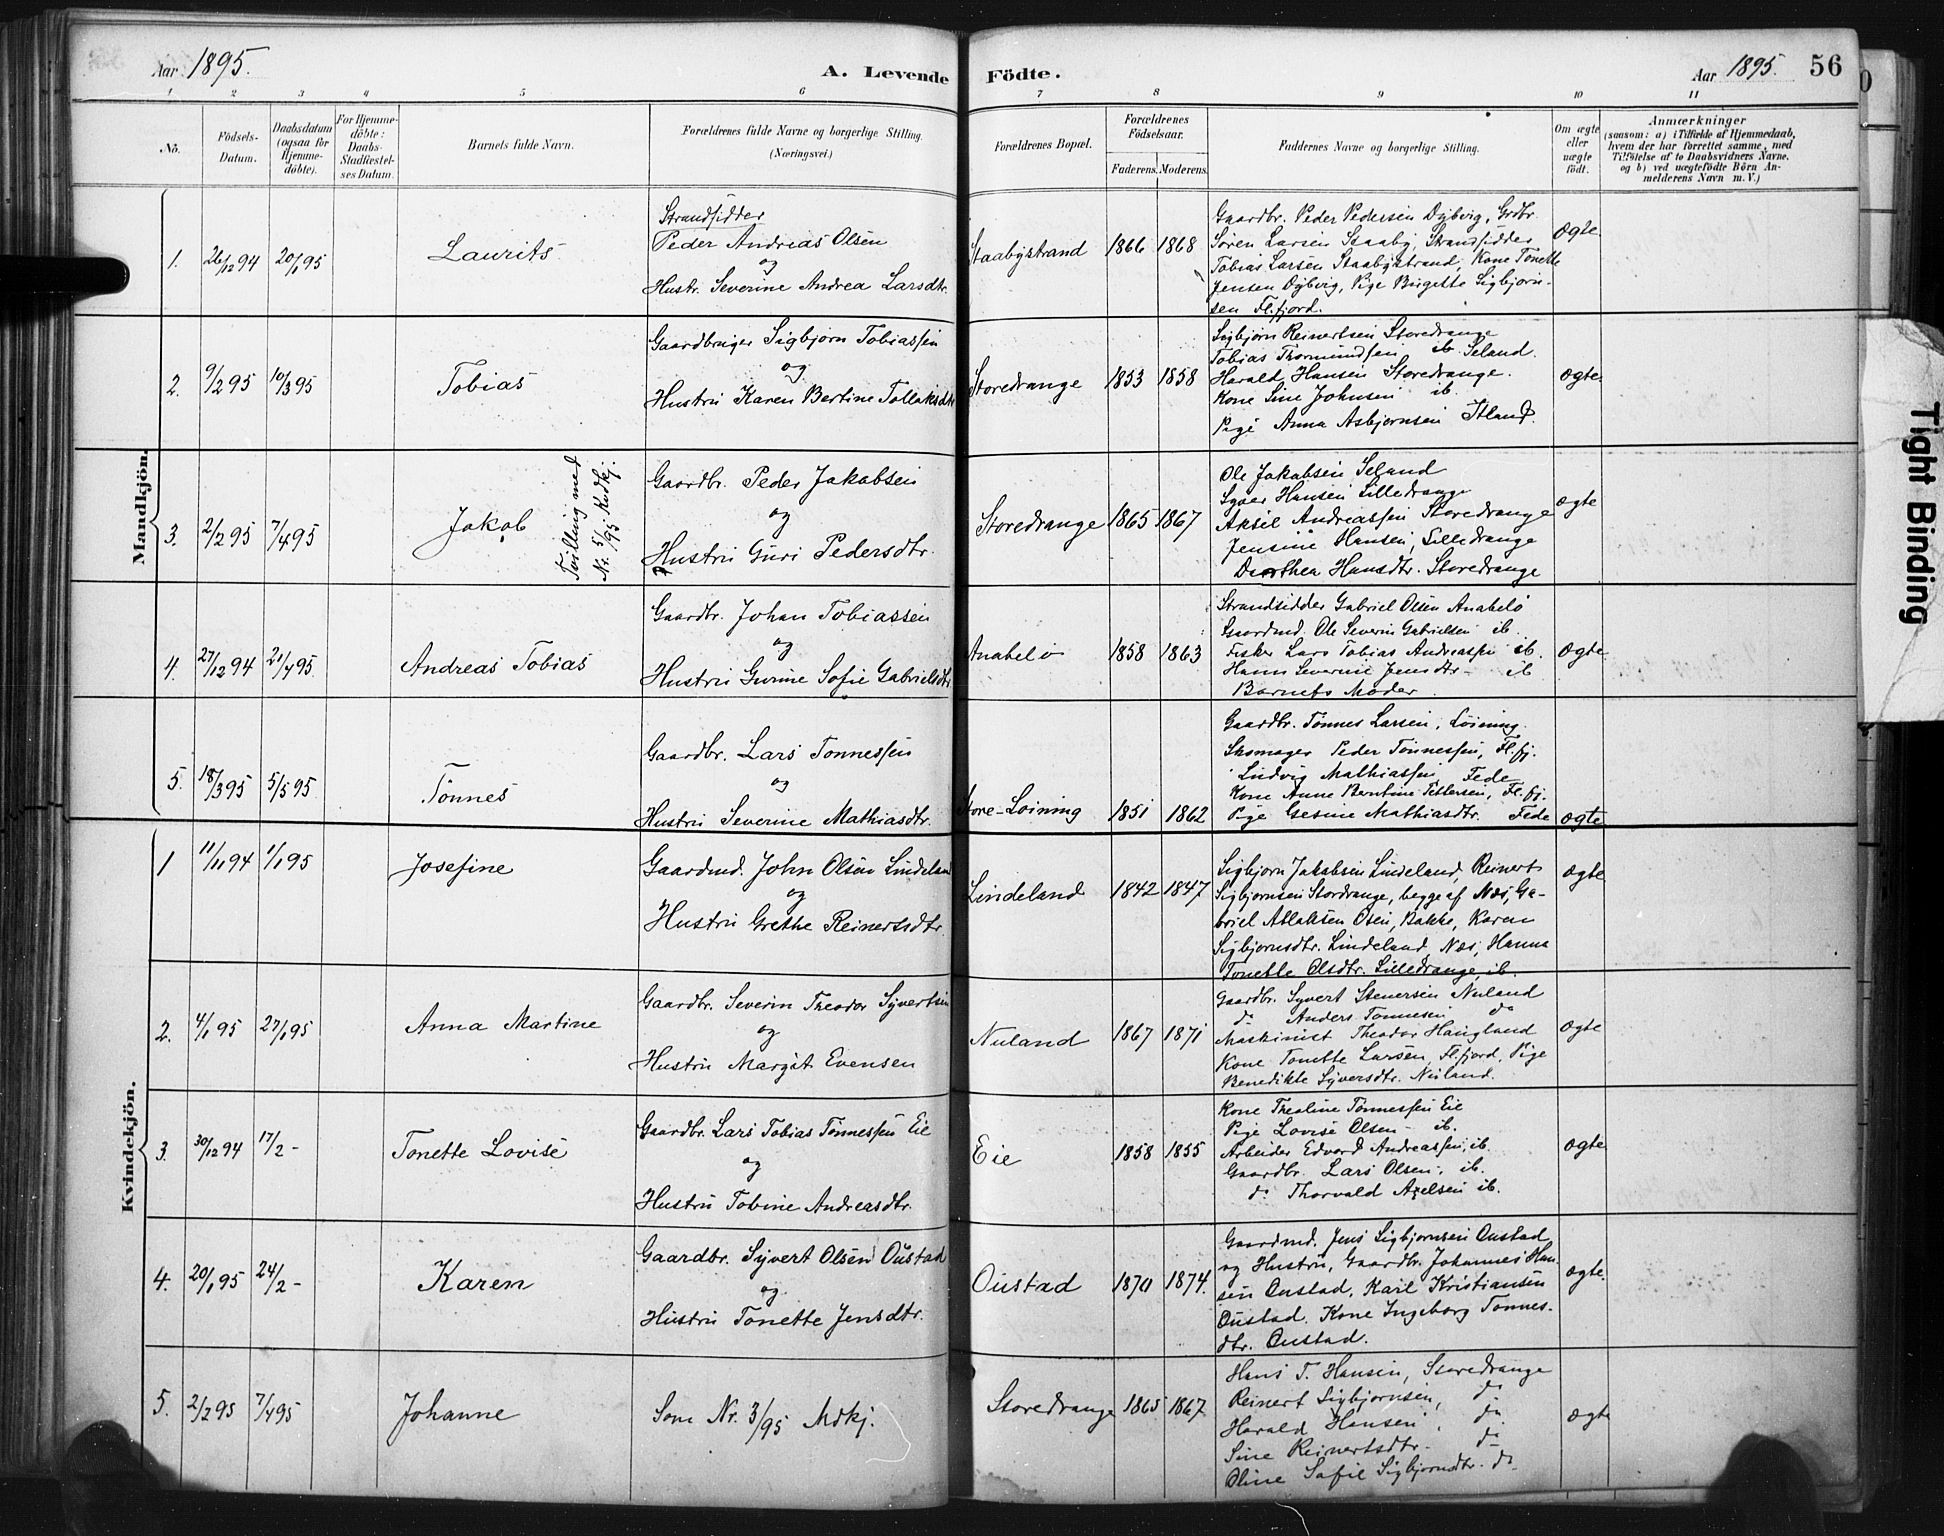 Aar 1895.
A. Levende
Födte.
Aar 1895.
56
1 2 3 4 5 6 7 8 9 10 11
Nö.
Födsels-
Datum.
Daabsdatum
(ogsaa for
Hjemme-
döbte).
For Hjemme-
döbte:
Daabs-
Stadfæstel-
ses Datum.
Barnets fulde Navn.
Forældrenes fulde Navne og borgerlige Stilling.
(Næringsvei.)
Forældrenes Bopæl.
Forældrenes
Födselsaar.
Faderens. Moderens.
Faddernes Navne og borgerlige Stilling.
Om ægte
eller
uægte
födt.
Anmærkninger
(saasom: a) i Tilfælde af Hjemmedaab,
hvem der har forrettet samme, med
Tilföielse af to Daabsvidners Navne,
og b) ved uægtefödte Börn An-
melderens Navn m. V.)
Mandkjön.
1. 26/12 94 20/1 95 Laurits
Strandsidder
Peder Andreas Olsen
og
Hustr. Severine Andrea Larsdtr.
Staabystrand 1866 1868
Gaardbr. Peder Pedersen Dybvig, Grdbr.
Sören Larsen Staaby, Strandsidder
Tobias Larsen Staabystrand, Kone Tonette
Jensen Dybvig, Pige Birgitte Sigbjørn-
sen Fl.fjord.
ægte
2. 9/2 95 10/3 95 Tobias
Gaardbruger Sigbjørn Tobiassen
og
Hustru Karen Bertine Tollaksdtr
Storedrange 1853 1858
Sigbjørn Reinertsen Storedrange
Tobias Thormundsen ib Seland.
Harald Hansen Storedrange.
Kone Sine Johnsen ib.
Pige Anna Asbjørnsen Itland.
ægte.
3. 2/2 95 7/4 95 Jakob
Tvilling med
Nr. 5/95 Kvdkj.
Gaardbr. Peder Jakobsen
og
Hustru Guri Pedersdtr.
Storedrange 1865 1867
Ole Jakobsen Seland
Hansen Lilledrange
Aksel Andreassen Storedrange
Jensine Hansen, Lilledrange
Dorthea Hansdtr. Storedrange
ægte
4. 27/12 94 21/4 95. Andreas Tobias
Gaardbr. Johan Tobiassen
og
Hustru Gurine Sofie Gabrielsdtr
Anabelö 1858 1863
Strandsidder Gabriel Olsen Anabelö
Gaardmd. Ole Severin Gabrielsen ib.
Fisker Lars Tobias Andreassen ib.
Hanna Severine Jensdtr - ib
Barnets Moder.
ægte
5. 18/3 95 5/5 95 Tönnes
Gaardbr. Lars Tonnessen
og
Hustru Severine Mathiasdtr.
Store-Loining 1851 1862
Gaardbr. Tönnes Larsen, Löining.
Skomager Peder Tönnessen, Fl.fj.
Ludvig Mathiassen Fede
Kone Anne Berntine Pettersen, Fl.fj.
Pige Gesine Mathiasdtr. Fede
ægte
Kvindekjön.
1 11/11 94 1/1 95 Josefine
Gaardmd. John Olsen Lindeland
og
Hustru Grethe Reinertsdtr.
Lindeland 1842 1847
Sigbjørn Jakobsen Lindeland, Reinert
Sigbjørnsen Stordrange, begge af Næs, Ga-
briel Atlaksen Osen, Bakke, Karen
Sigbjørnsdtr. Lindeland, Næs, Hanna
Tonette Olsdtr. Lilledrange, ib.
ægte
2. 4/1 95 27/1 95 Anna Martine
Gaardbr. Severin Theodor Syvertsen
og
Hustru Margit Evensen
Nuland 1867 1871
Gaardbr. Syvert Stenersen Nuland
do Anders Tonnesen do
Maskinist Theodor Haugland
Kone Tonette Larsen, Fl.fjord, Pige
Benedikte Syversdtr. Nuland.
ægte
3. 30/12 94 17/2 - Tonette Lovise
Gaardbr. Lars Tobias Tönnessen Eie
og
Hustru Tobine Andreasdtr.
Eie 1858 1855
Kone Thealine Tönnessen Eie
Pige Lovise Olsen - ib.
Arbeider Edvard Andreassen, ib.
Gaardbr. Lars Olsen, ib.
do Thorvald Axelsen ib.
ægte
4. 20/1 95 24/2 - Karen
Gaardbr. Syvert Olsen Oustad
og
Hustru Tonette Jensdtr.
Oustad 1870 1874.
Gaardmd. Jens Sigbjørnsen Oustad
og Hustru, Gaardbr. Johannes Han-
sen Oustad, Karl Kristiansen
Oustad. Kone Ingeborg Tonnes-
dtr. Oustad.
ægte.
5. 2/2 95 7/4 95 Johanne
Som Nr. 3/95 Mdkj.
Storedrange 1865 1867
Hans T. Hansen, Storedrange
Reinert Sigbjørnsen, do
Harald Hansen, do
Sine Reinertsdtr. do
Oline Sofie Sigbjørnsdtr. do
ægte
Tight Binding